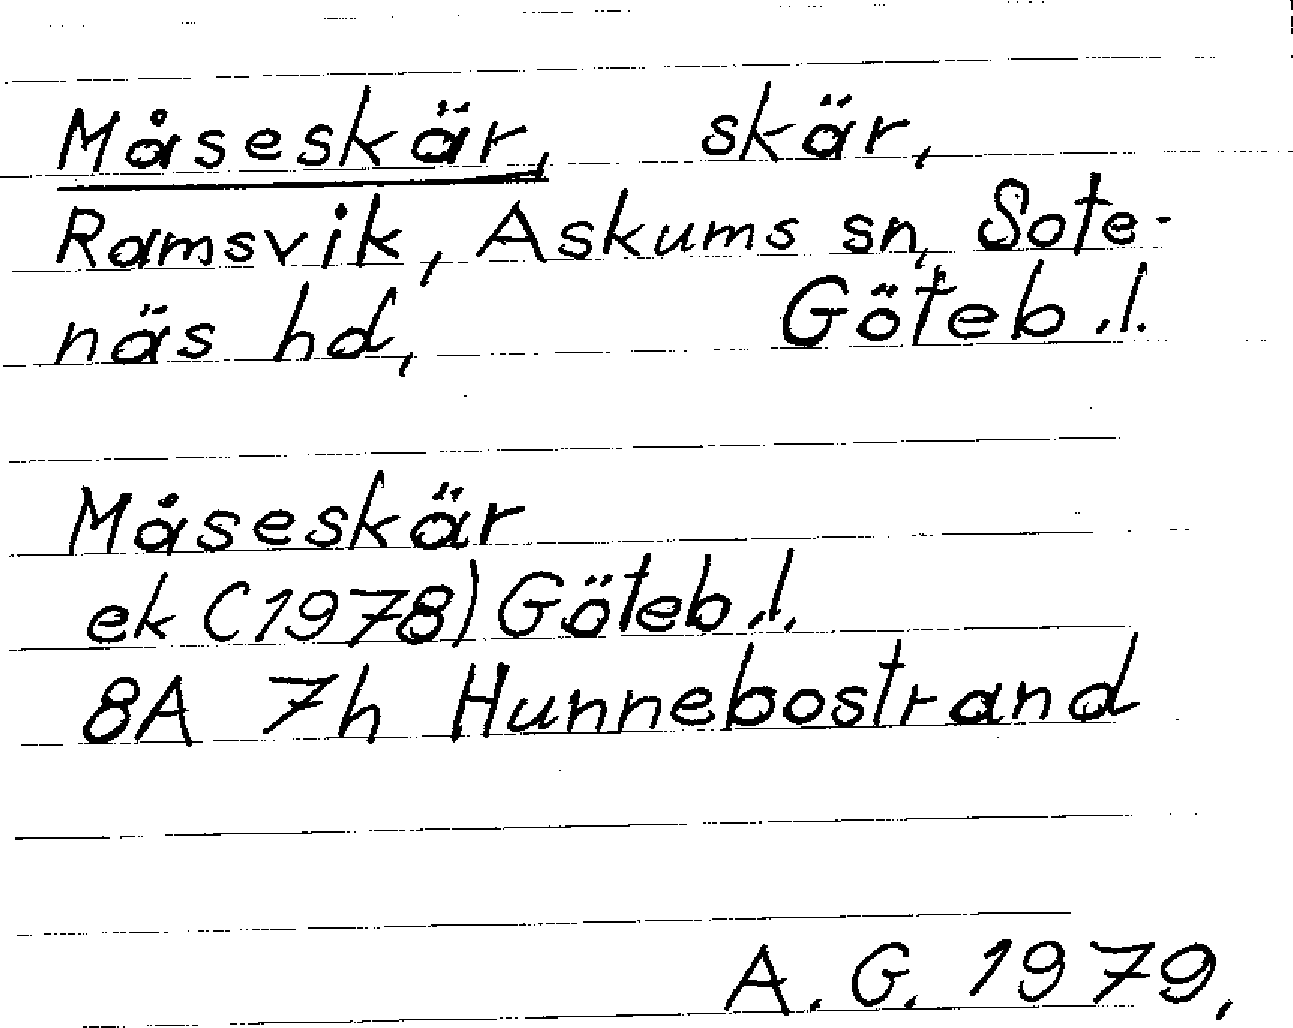 Måseskär, skär,
Ramsvik, Askums sn, Sote-
näs hd, Göteb.l.
Måseskär
ek (1978) Göteb.l.
8A 7h Hunnebostrand
A. G. 1979.